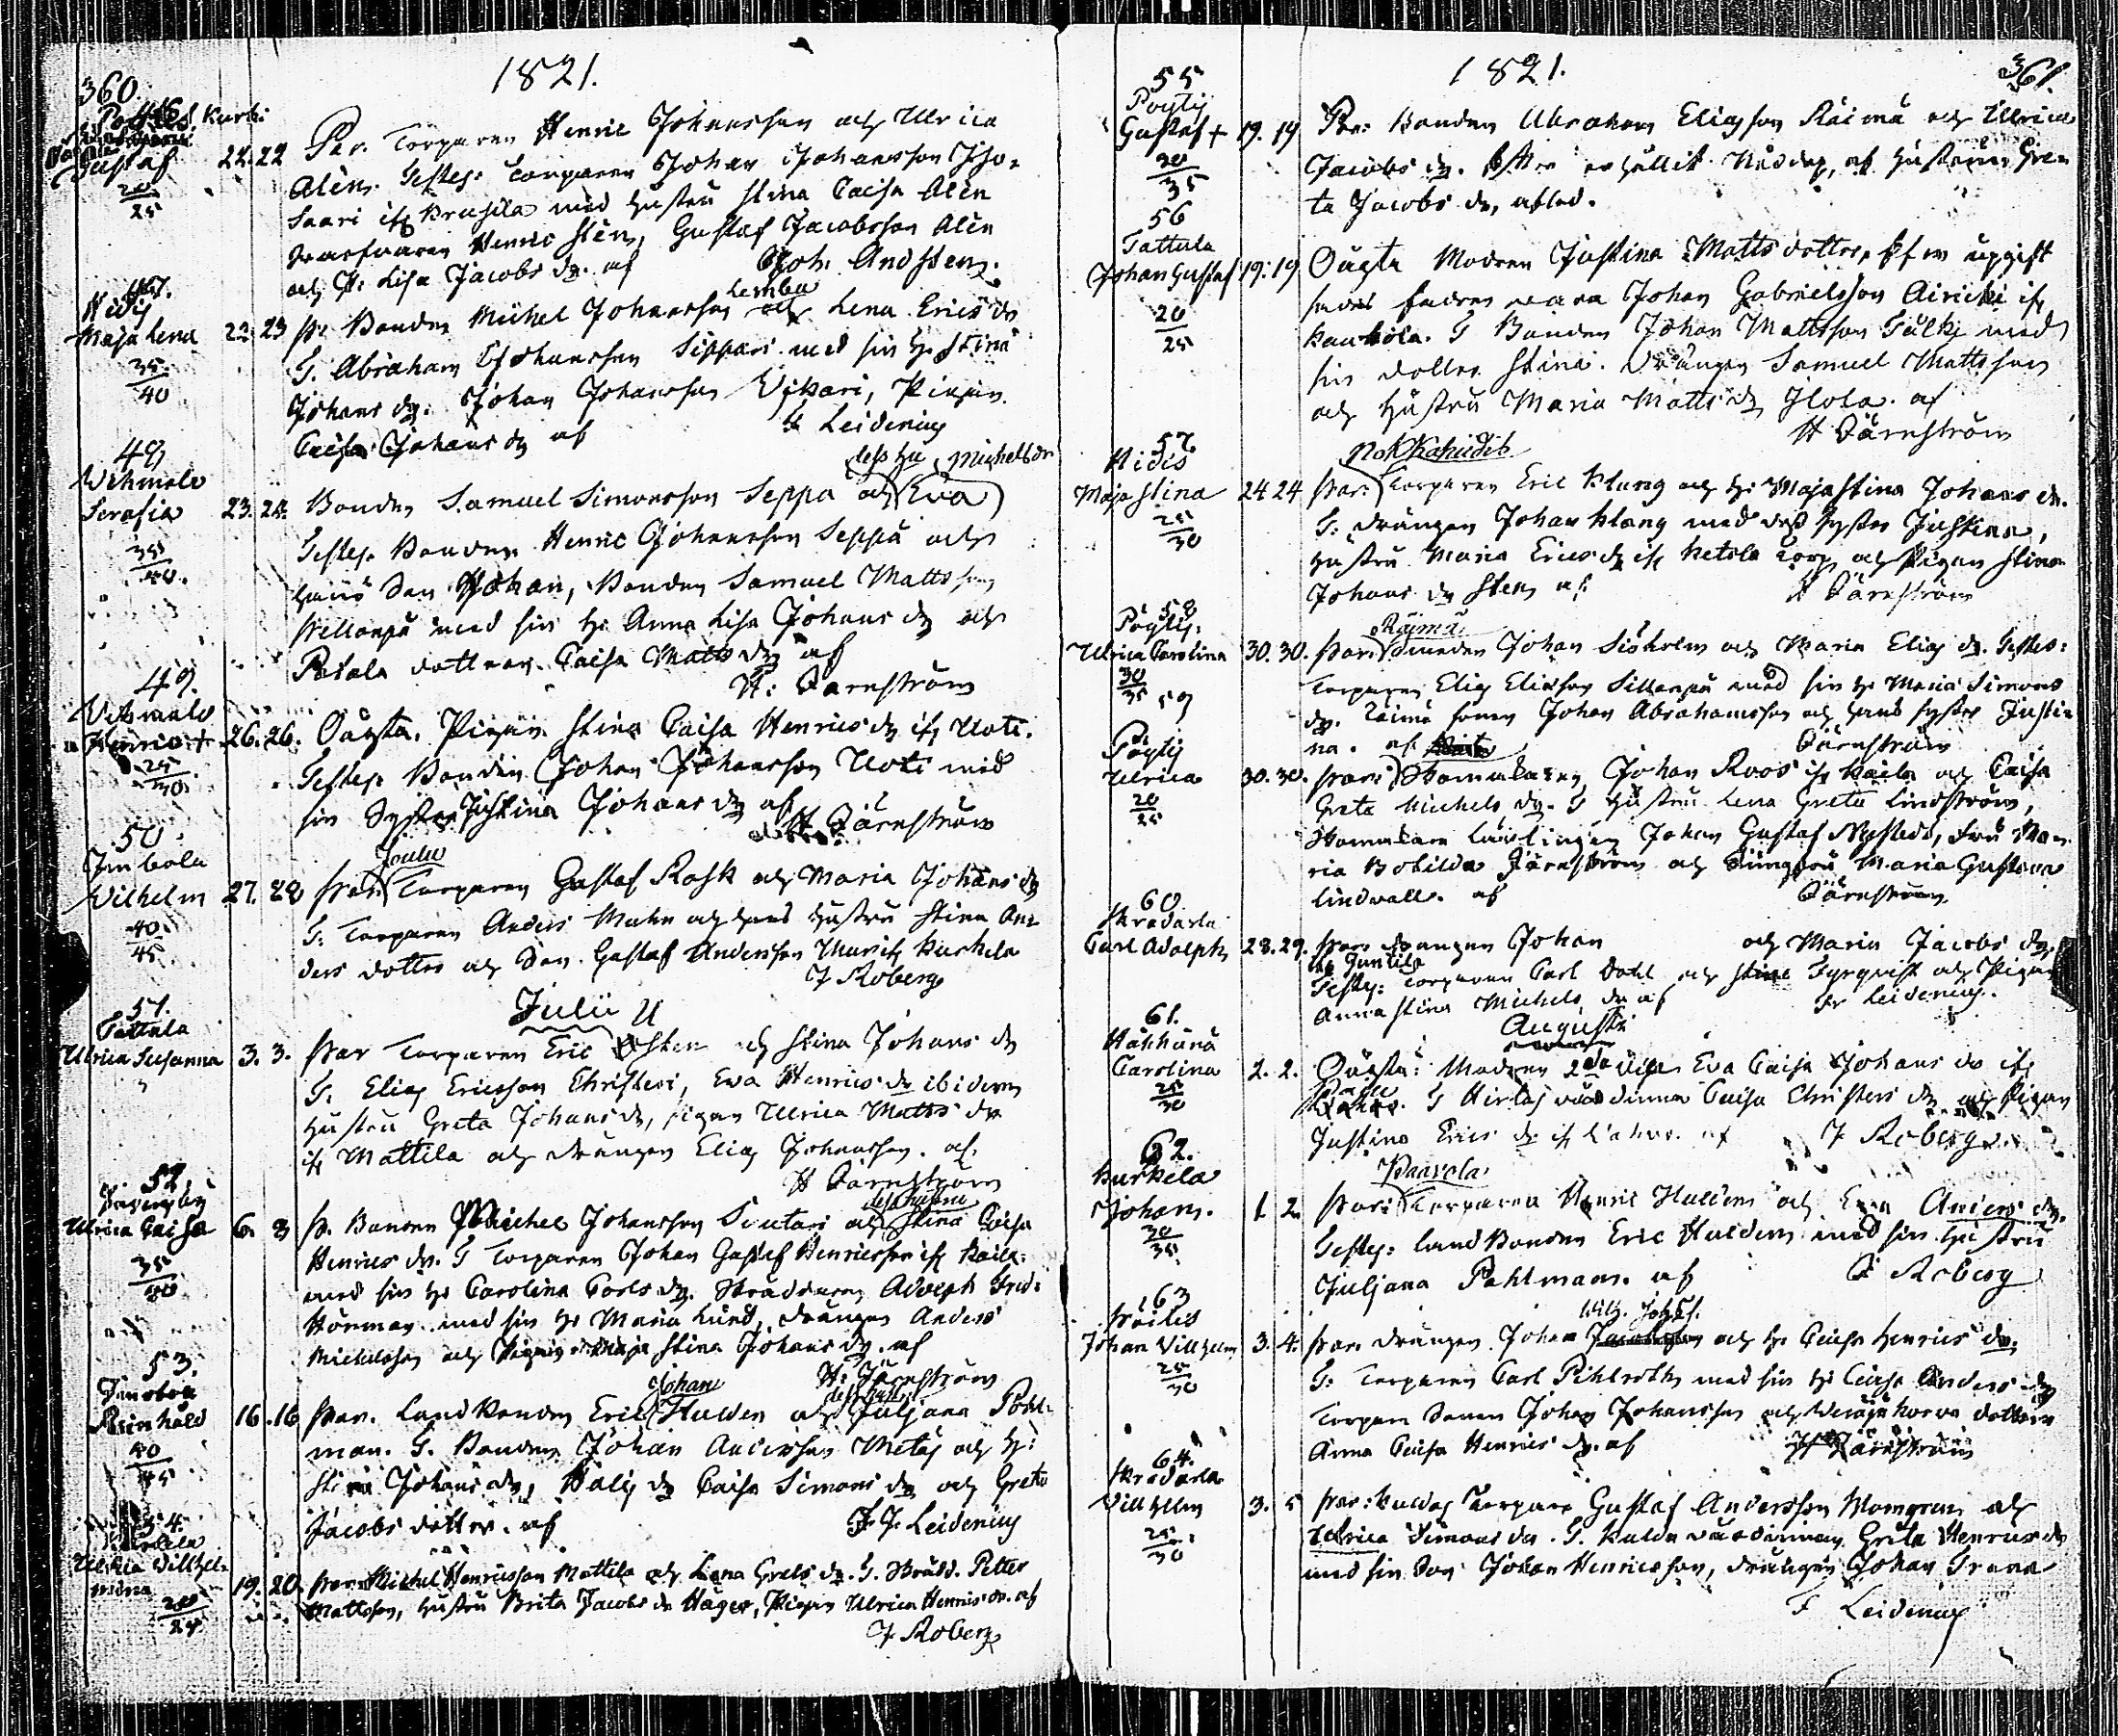 360
1821.
46
Gustaf
20/25
22. 22
Par. Torparen Henric Johansson och Ulrica
Alèn. Testes. Torparen Johan Johansson
Saari ifr. med hustru Stina Caisa Alèn
Henric Stèn, Gustaf Jacobsson Alèn
och H. Lisa Jacobs dr. af Joh. Andsten.
47.
Maja Lena
35/40
22. 23
Lemba
Pr Bonden Michel Johansson och Lena Erics dr
T. Abraham Johansson Sippari med sin h. Stina
Johans dr. Johan Johansson Vikari, Pigan
Caisa Johans dr af F Leidenius
48
Wehmalo
Serafia
35/40.
23. 24.
dess hu Michels dr
Bonden Samuel Simonsson Seppä och Eva
Testes. Bonden Henric Johansson Seppä och
hans Son Johan, Bonden Samuel Mattsson
med sin h. Anna Lisa Johans dr och
dottren Caisa Matts dr af
H: Järnström
49.
Wehmalo
Henric +
25/30
26. 26.
Oäkta. Pigan Stina Caisa Henrics dr ifr Uoti.
Testes. Bonden Johan Johansson Uoti med
sin Syster Justina Johans dr af
H Järnström
50.
Wilhelm
40/45
27. 28
Joulu
Par. Torparen Gustaf Rask och Maria Johans dr
T: Torparen Anders Malm och hans hustru Stina An-
ders dotter och Son Gustaf Andersson ifr Kurkela
F Roberg
Julii
51.
Tattula
Ulrica Susanna
3. 3.
Par Torparen Eric Östen och Stina Johans dr
T. Elias Ericsson Christeri, Eva Henrics dr ibidem
hustru Greta Johans dr, pigan Ulrica Matts dr
ifr Mattila och drängen Elias Johansson. af
H Järnström
52.
Ulrica Caisa
35/40
6. 8
dess hustru
Pr. Bonden Michel Johansson Suutari och Stina Caisa
Henrics dr. T Torparen Johan Gustaf Henricsson ifr Kaila
med sin h. Carolina Carls dr. Skräddaren Adolph Fred.
Hörman med sin h. Maria Lund, drängen Anders
Michelsson och Pigan Maja Stina Johans dr. af
H. Järnström
53.
Reinhold
40/45
16. 16
Johan dess hustru
Par. Landbonden Eric Hulden och Juljana Pohl-
man. T. Bonden Johan Andersson Metäs och H:
Stina Johans dr, Caisa Simons dr och Greta
Jacobs dotter. af F. F. Leidenius
54.
Ulrica Willhel-
mina
20/25
19. 20.
Par. Michel Henricsson Mattila och Lena Grels dr. T. Skrädd. Petter
Mattsson, hustru Brita Jacobs dr Häger, Pigan Ulrica Henrics dr. af
F Roberg
361.
1821.
55
Pöytij
Gustaf +
30/35
19. 19
Par: Bonden Abraham Eliasson Räimä och Ulrica
Jacobs dr. efter erhållit Nöddop, af hustrun Gre-
ta Jacobs dr, afled.
56
Tattula
Johan Gustaf
20/25
19. 19.
Oäkta Modren Justina Matts dotter, efter upgift
fadren vara Johan Gabrielsson Airikki ifr
T Bonden Johan Mattsson Tulki med
sin dotter Stina. Drängen Samuel Mattsson
och hustru Maria Matts dr Ilola. af
H Järnström
57.
Maja Stina
25/30
24 24
Par: Torparen Eric Klang och h: Maja Stina Johans dr.
T: drängen Johan Klang med dess syster Justina,
hustru Maria Erics dr ifr Ketola Torp och Pigan Stina
Johans dr Sten af H Järnström
58
Pöytij.
Ulrica Carolina
30/35
30. 30.
Räimä
Par: Smeden Johan Sjöholm och Maria Elias dr. Testes:
Torparen Elias Eliasson Sillanpää med sin h. Maria Simons
dr. Räimä sonen Johan Abrahamsson och hans syster Justi-
na. af Järnström
59
Pöytij
Ulrica
20/25
30. 30.
Par: Skomakaren Johan Roos ifr Kaila och Caisa
Greta Michels dr. T Hustru Lena Greta Lindström,
Skomakare Lärlingen Johan Gustaf Nystedt, Fru Ma-
ria Botilda Järnström och Jungfru Maria Gustava
Lindwall. af Järnström
60.
Skredarla
Carl Adolph
28. 29.
Par. drängen Johan och Maria Jacobs dr.
Testes: Torparen Carl Dahl och Stina Fyrqvist och Pigan
Anna Stina Michels dr af Fr Leidenius.
Augusti
61.
Carolina
25/30
2. 2.
Oäkta: Modren 2dra Eva Caisa Johans dr ifr
T Caisa Christers dr och Pigan
Justina Erics dr ifr F Roberg
62.
Kurkela
Johan.
30/35
1. 2.
Paavola
Par: Torparen Henric Hulden och Eva Anders dr.
Testes: Landbonden Eric Hulden med sin hustru
Juljana Pahlman. af F Roberg
63
Johan Willhelm
25/30
3. 4.
Par. drängen Johan och h. Caisa Henrics dr.
T. Torparen Carl Pihlroth med sin h: Caisa Anders dr
Torpare Sonen Johan Johansson och dottren
Anna Caisa Henrics dr. af H Järnström
64.
Skredarla
Willhelm
25/30
3. 5
Par: Torpare Gustaf Andersson Momgren och
Ulrica Simons dr. T. Greta Henrics dr
med sin Son Johan Henricsson, drängen Johan Grana
F Leidenius